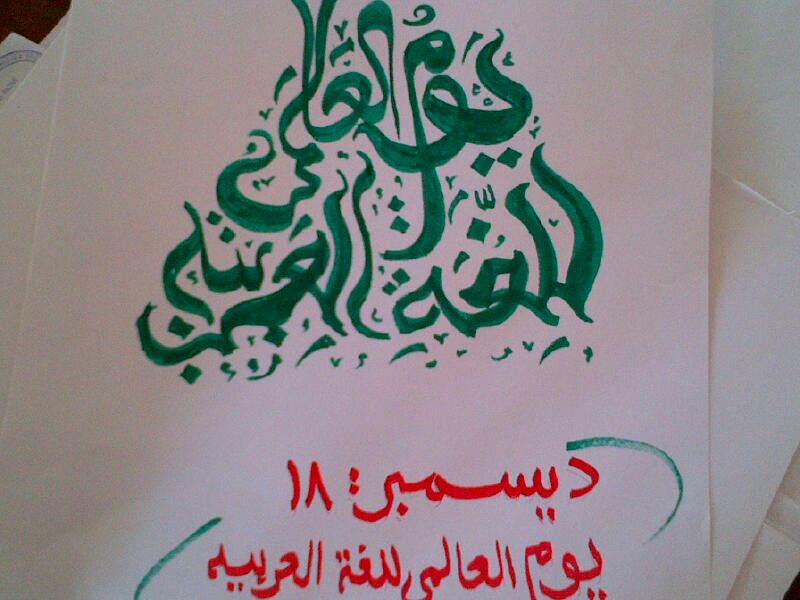 يوم العالمي
للغة العربية
ديسمبر: ١٨
يوم العالمي للغة العربيه